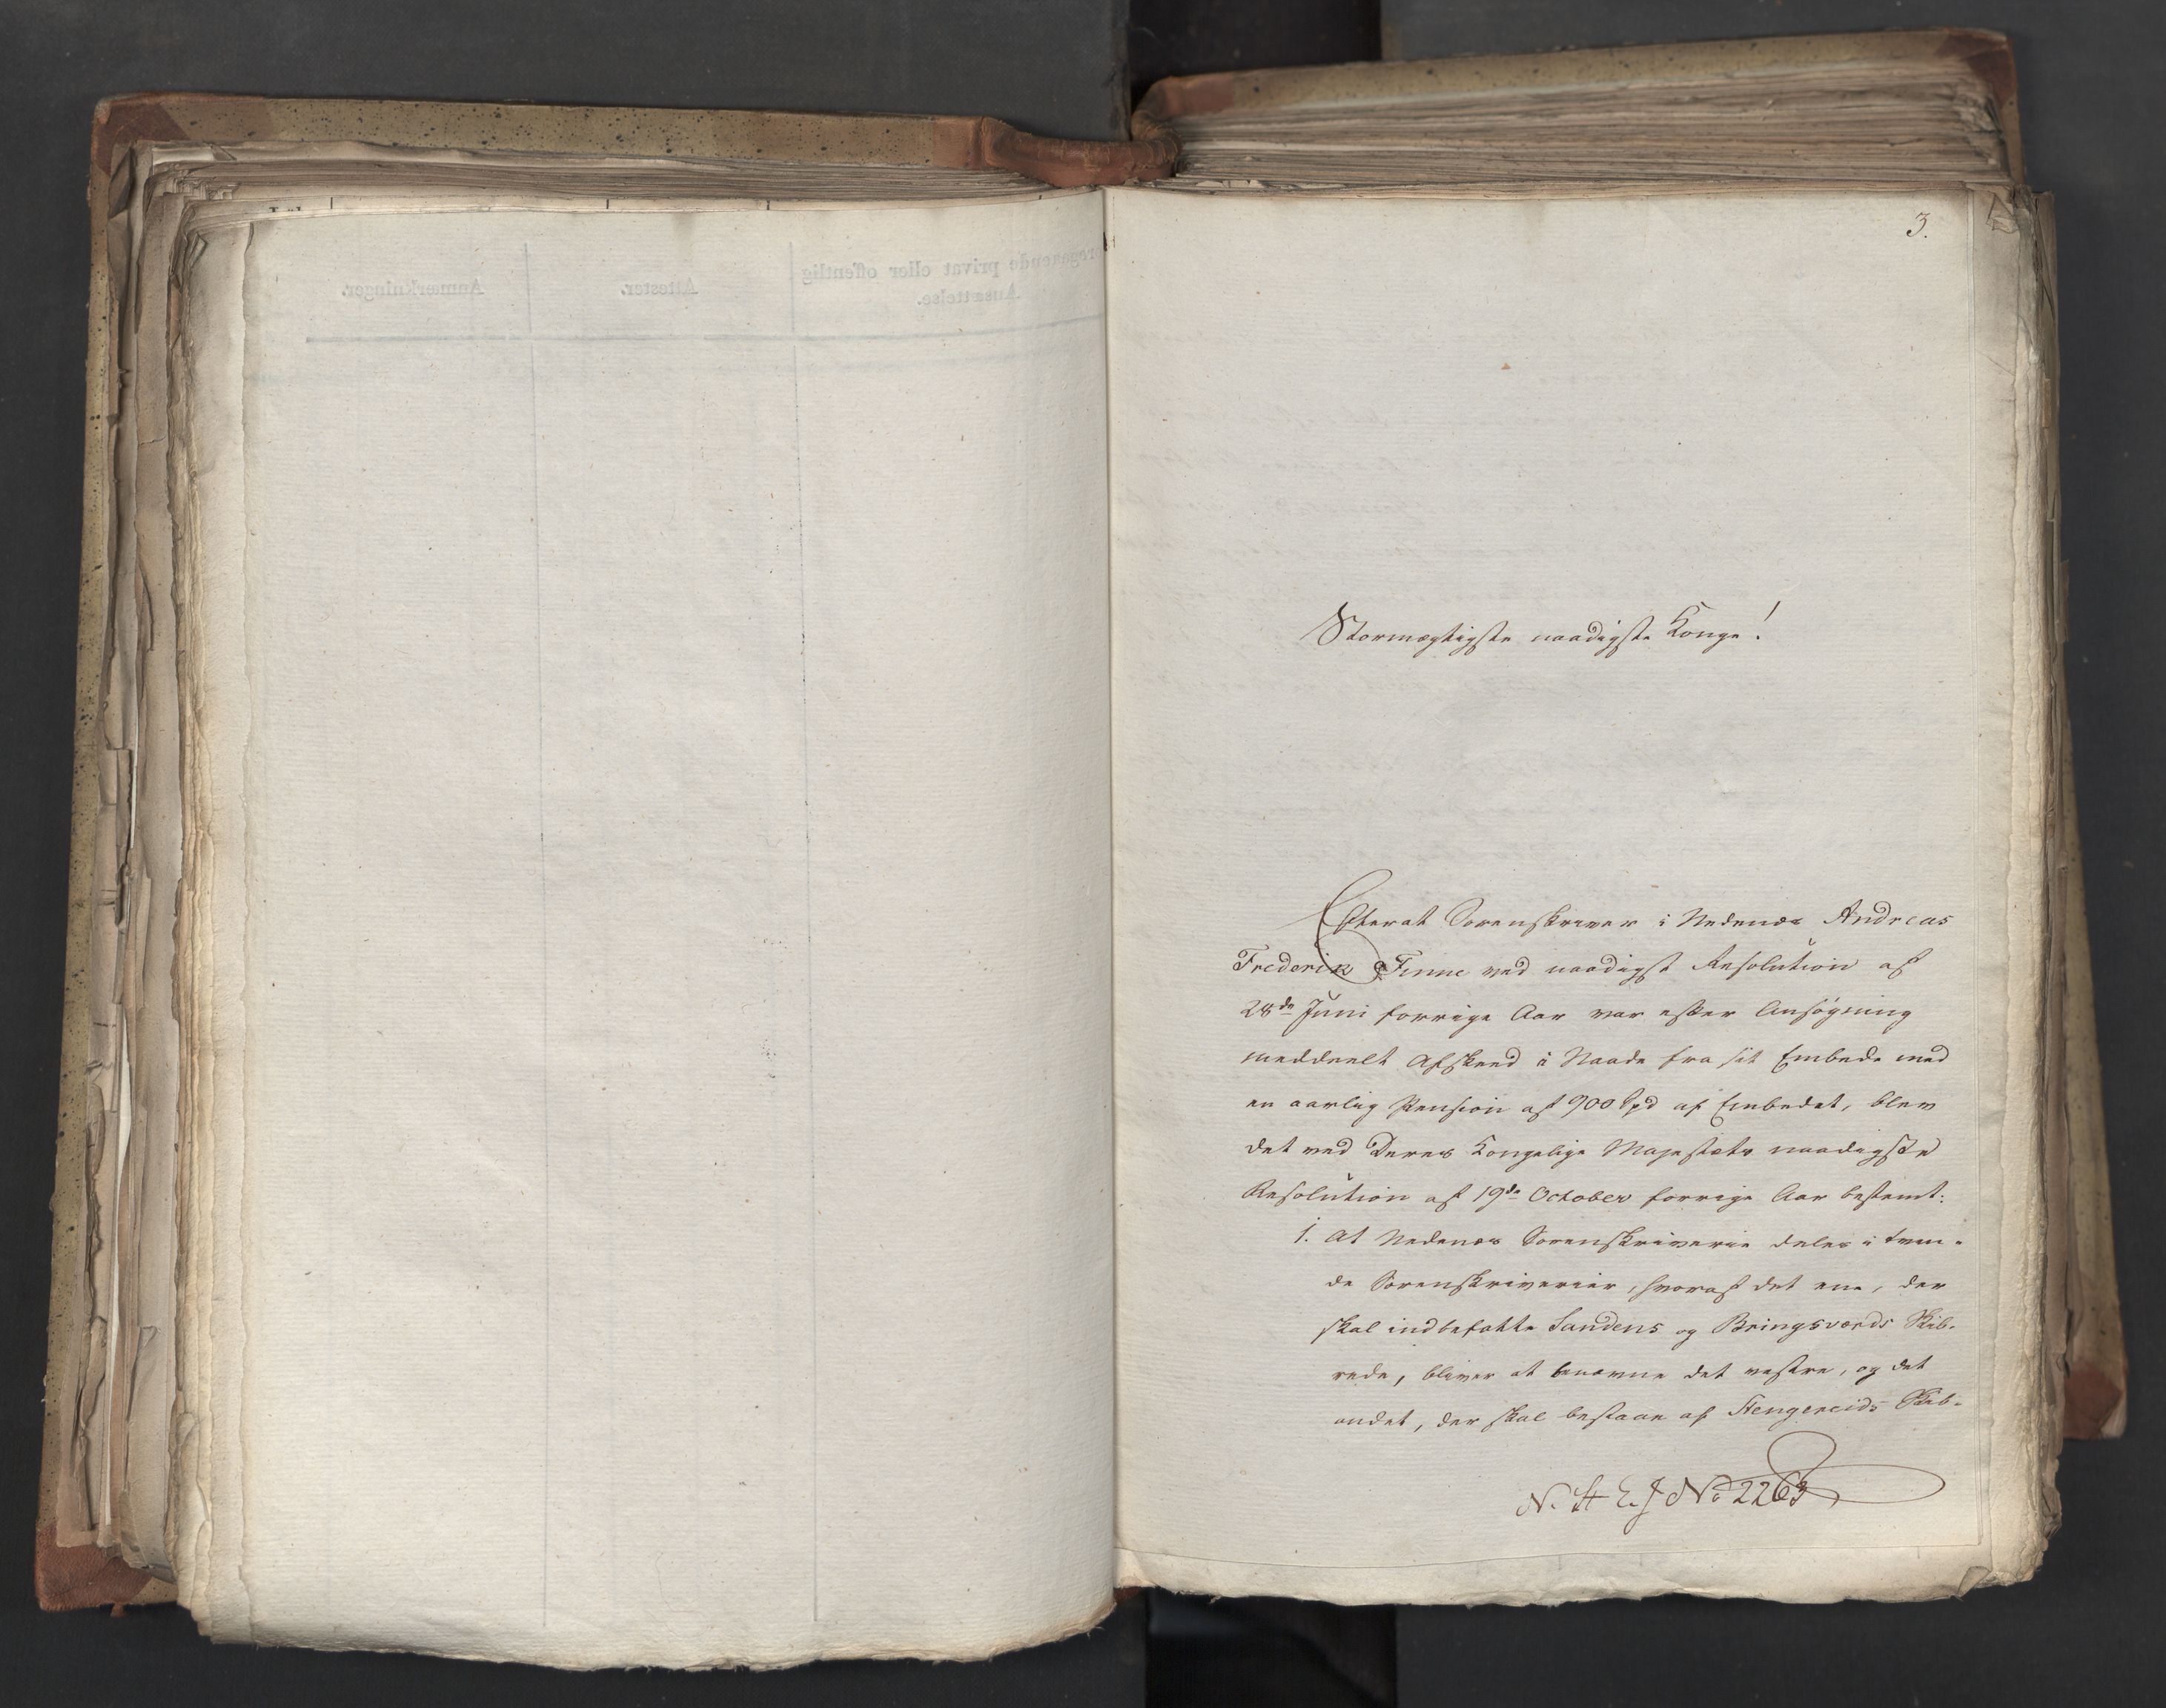 3.
Stormægtigste naadigste Konge!
Efterat Sorenskriver i Nedenæs Andreas
Frederik Finne ved naadigst Resolution af
28de Juni forrige Aar var efter Ansøgning
meddeelt Afskeed i Naade fra sit Embede med
en aarlig Pension af 900 Spd af Embedet, blev
det ved Deres Kongelige Majestæts naadigste
Resolution af 19de October forrige Aar bestemt:
1. At Nedenæs Sorenskriverie deles i tven-
de Sorenskriverier, hvoraf det ene, der
skal indbefatte Sandens og Bringsværds Skib-
rede, bliver at benævne det vestre, og det
andet, der skal bestaae af Stengereids Skib-
No 2263
Anmærkninger.
Attester.
privat eller offentlig
Ansættelse.